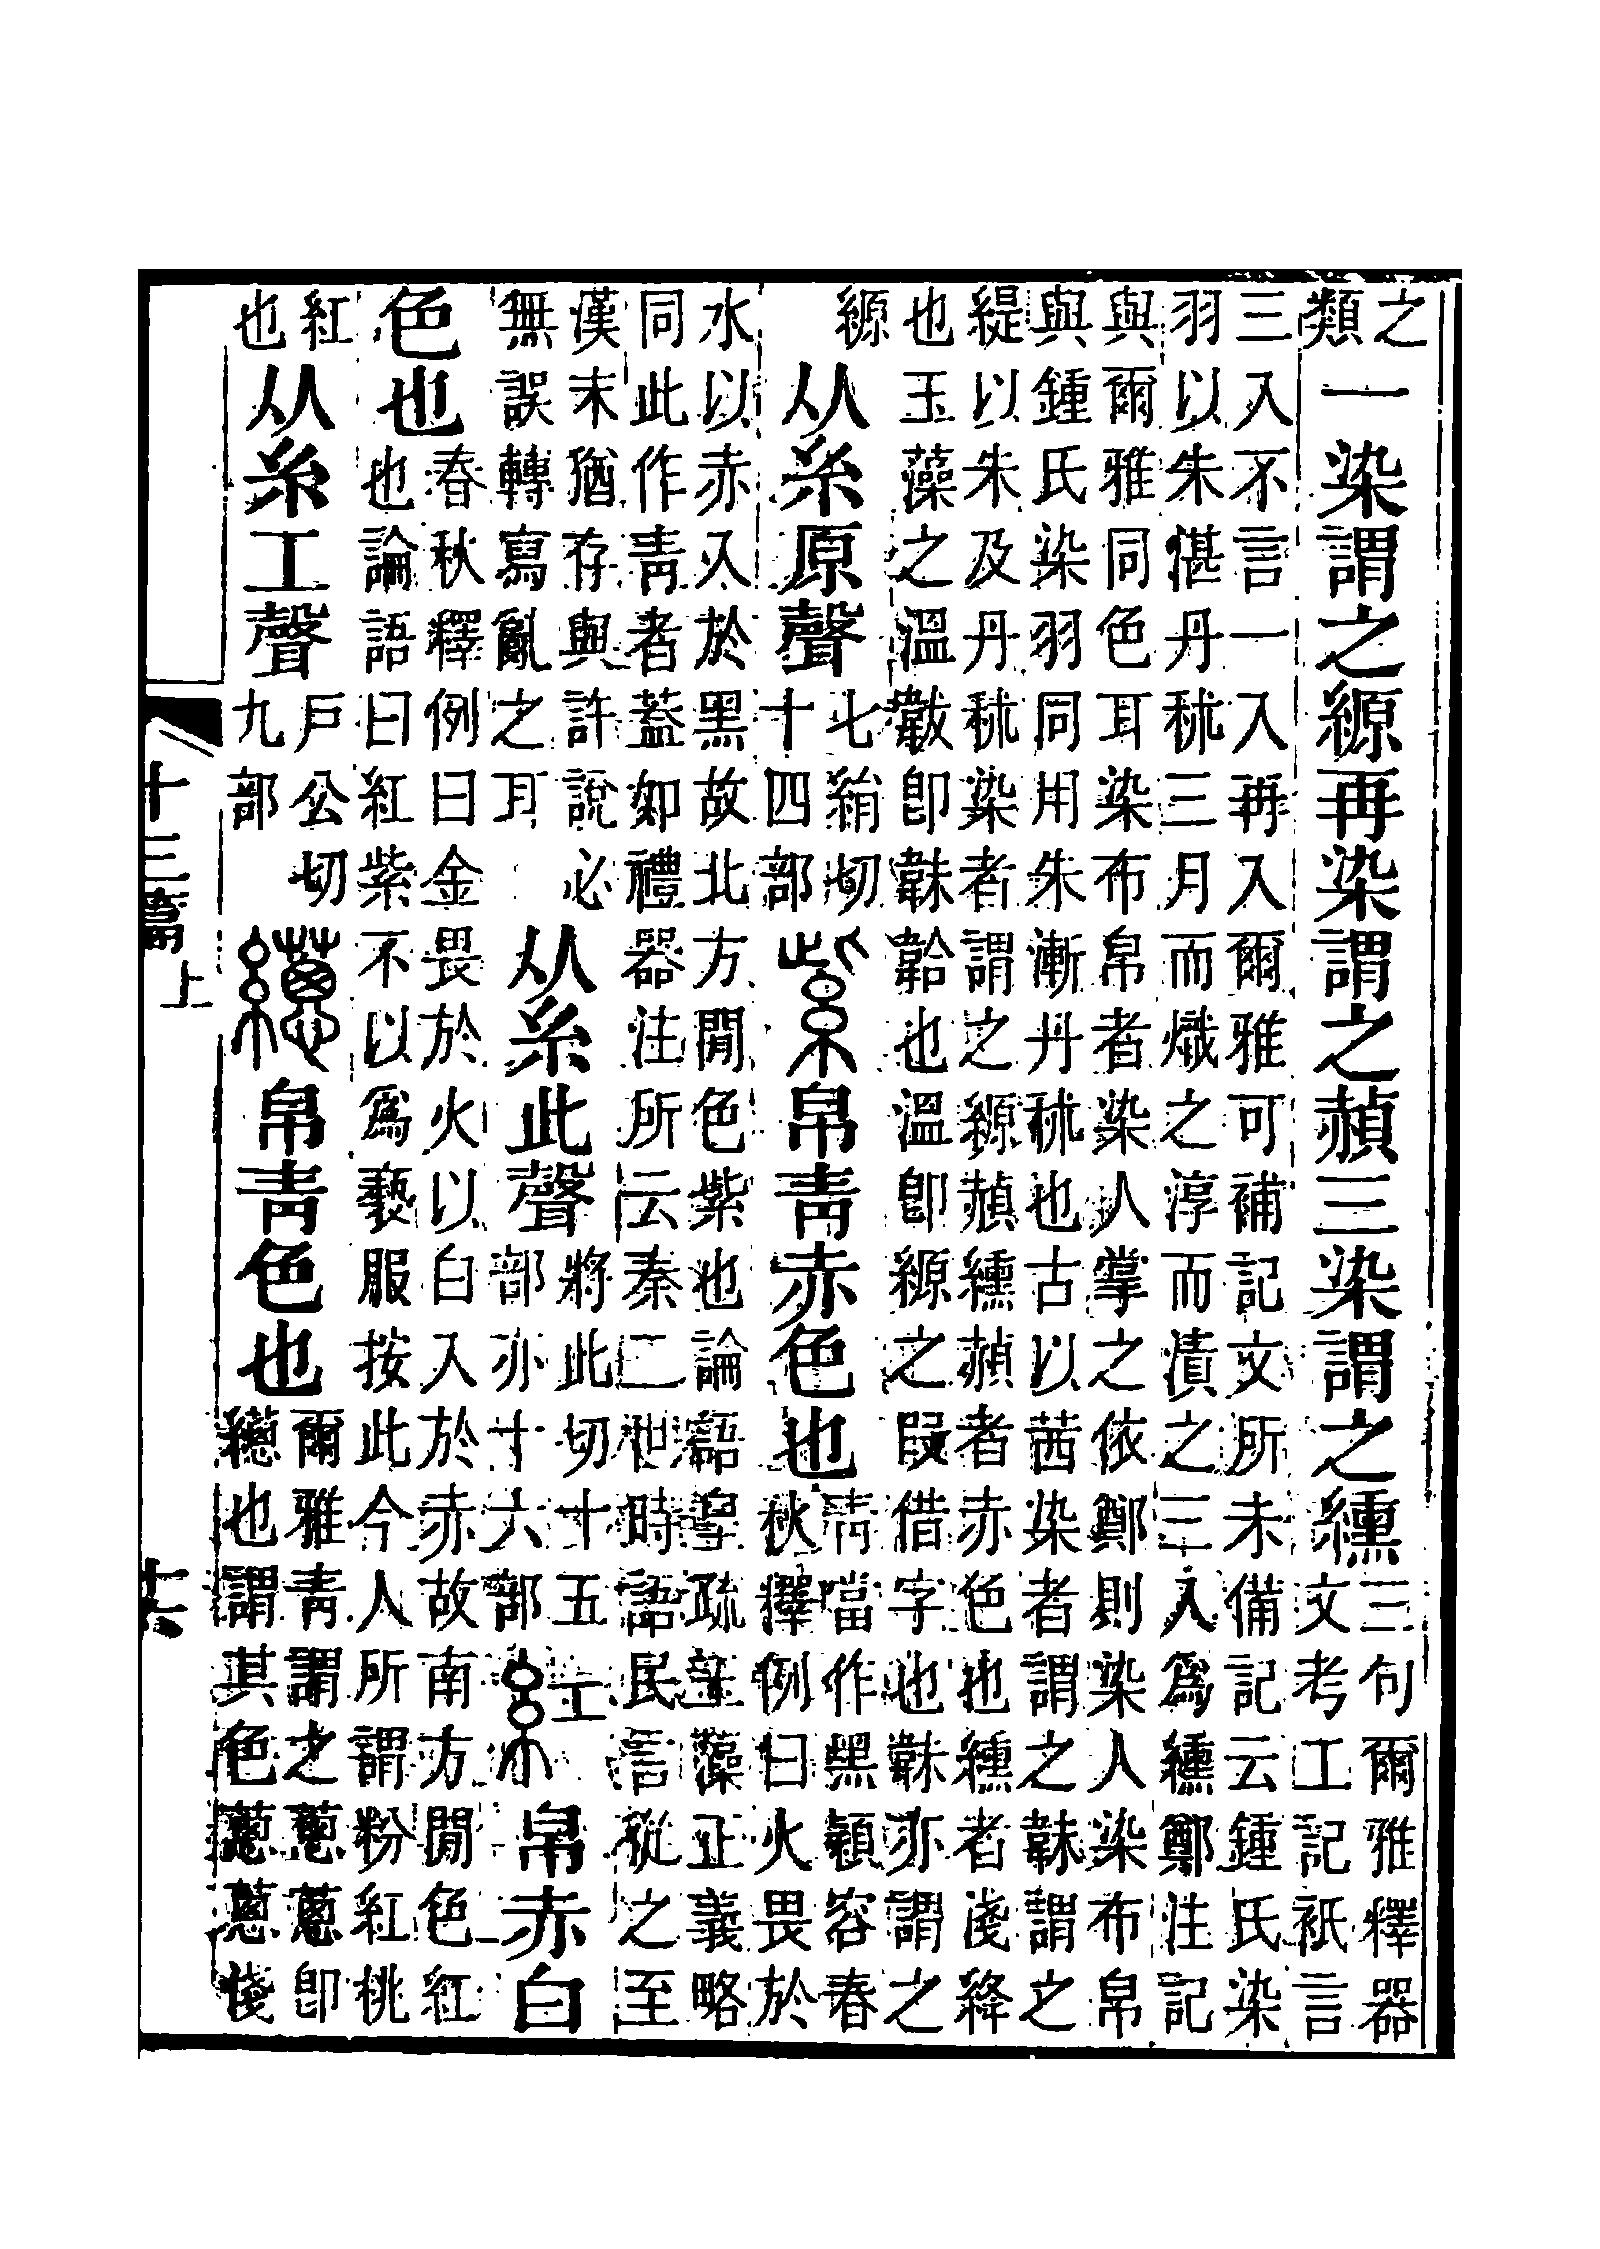 之類一染謂之縓再染謂之赬三染謂之纁三句爾雅釋器文考工記祇言
三入不言一入再入爾雅可補記文所未備記云鍾氏染
羽以朱湛丹秫三月而熾之淳而漬之三入爲纁鄭注記
與爾雅同色耳染布帛者染人掌之依鄭則染人染布帛
與鍾氏染羽同用朱漸丹秫也古以茜染者謂之韎謂之
緹以朱及丹秫染者謂之縓赬纁赬者赤色也纁者淺絳
也玉藻之溫韍卽韎韐也溫卽縓之叚借字也韎亦謂之
縓从糸原聲七絹切十四部紫帛青赤色也青當作黑穎容春秋釋例曰火畏於
水以赤入於黑故北方閒色紫也論語皇疏玉藻正義略
同此作青者蓋如禮器注所云秦二世時語民言從之至
漢末猶存與許說必無誤轉寫亂之耳从糸此聲將此切十五部亦十六部紅帛赤白
色也春秋釋例曰金畏於火以白入於赤故南方閒色紅也論語曰紅紫不以爲褻服按此今人所謂粉紅桃
紅也从糸工聲戶公切九部繱帛青色也爾雅青謂之蔥蔥卽繱也謂其色蔥蔥淺
十三篇上 十六